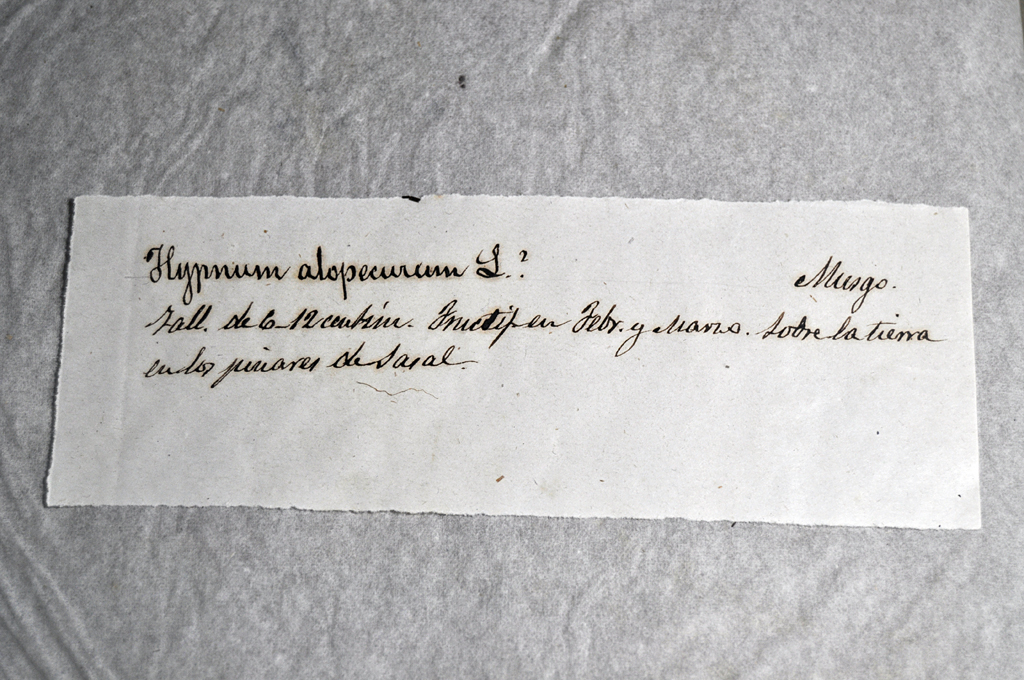 Hypnum alopecurum L.? Musgo.
Tall. de 6-12 centím. Fructif. en Febr. y Marzo. Sobre la tierra
en los pinares de Sasal.